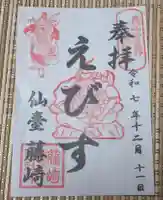 奉拝
令和七年十二月十一日
えびす
仙臺
藤崎